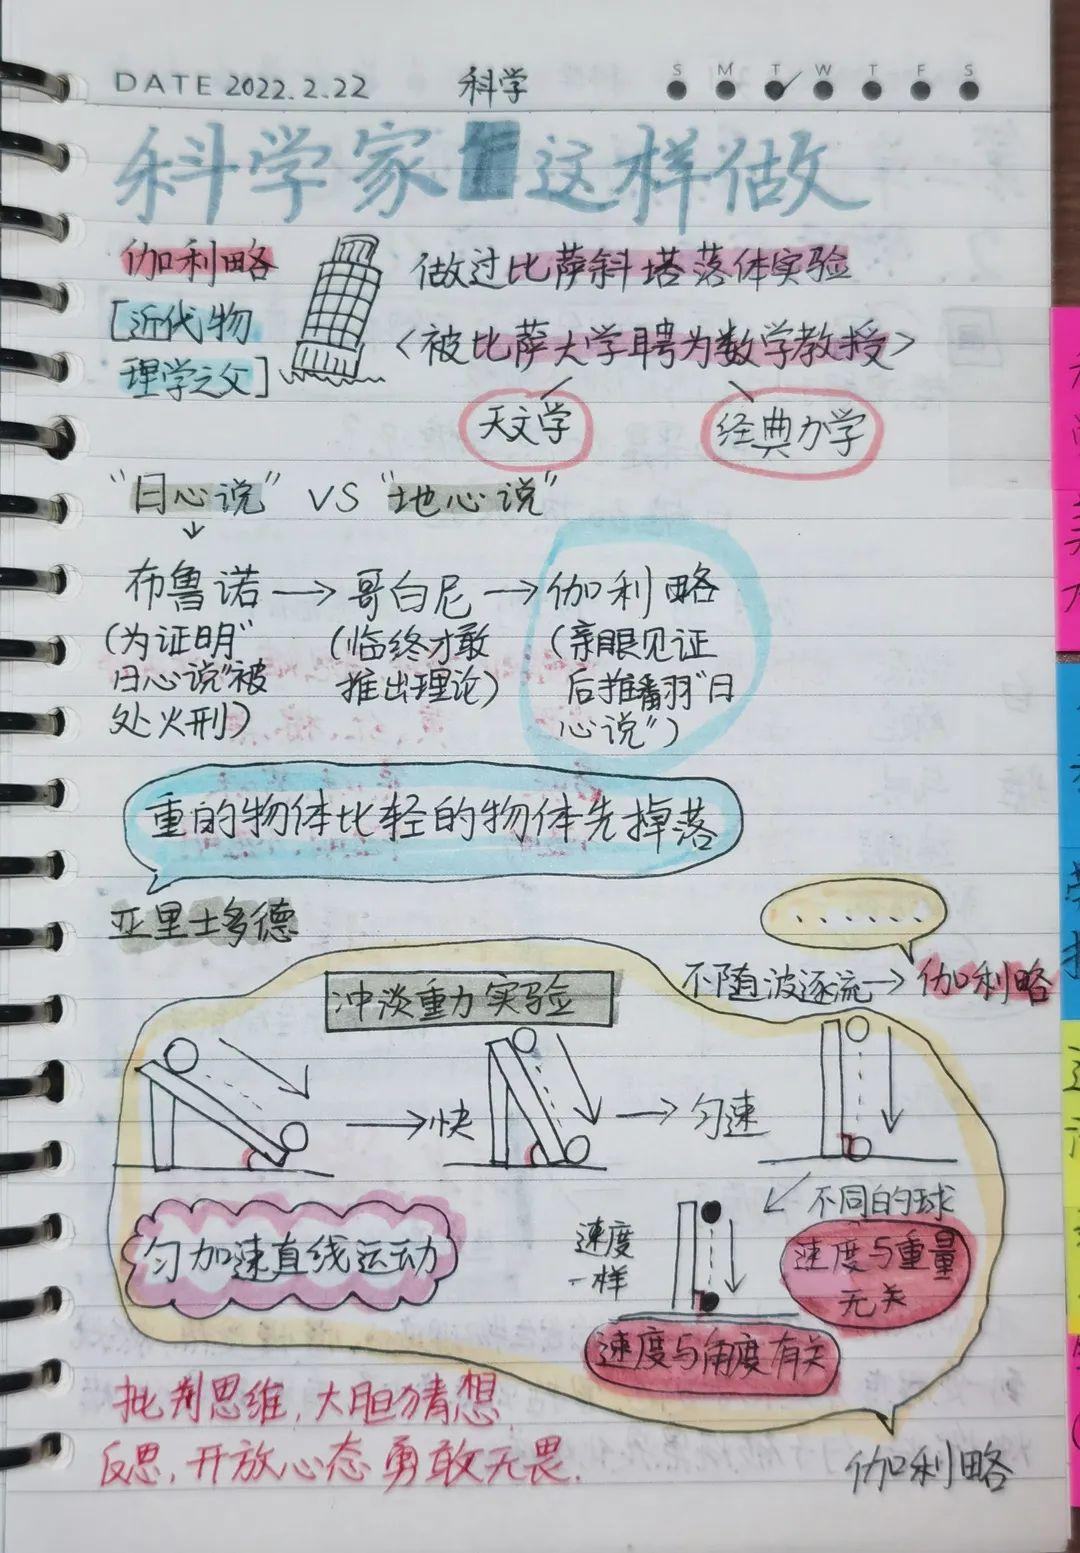 DATE 2022.2.22 科学 S M T W T F S
科学家 这样做
伽利略
[近代物
理学之父]
做过比萨斜塔落体实验
<被比萨大学聘为数学教授>
天文学 经典力学
"日心说" VS "地心说"
↓
布鲁诺→哥白尼→伽利略
(为证明"
日心说"被
处火刑)
(临终才敢
推出理论)
(亲眼见证
后推翻"日
心说")
重的物体比轻的物体先掉落
亚里士多德
......
不随波逐流→伽利略
冲淡重力实验
→快 →匀速
不同的球
匀加速直线运动
速度
一样
速度与重量
无关
速度与角度有关
批判思维,大胆猜想
反思,开放心态勇敢无畏.
伽利略